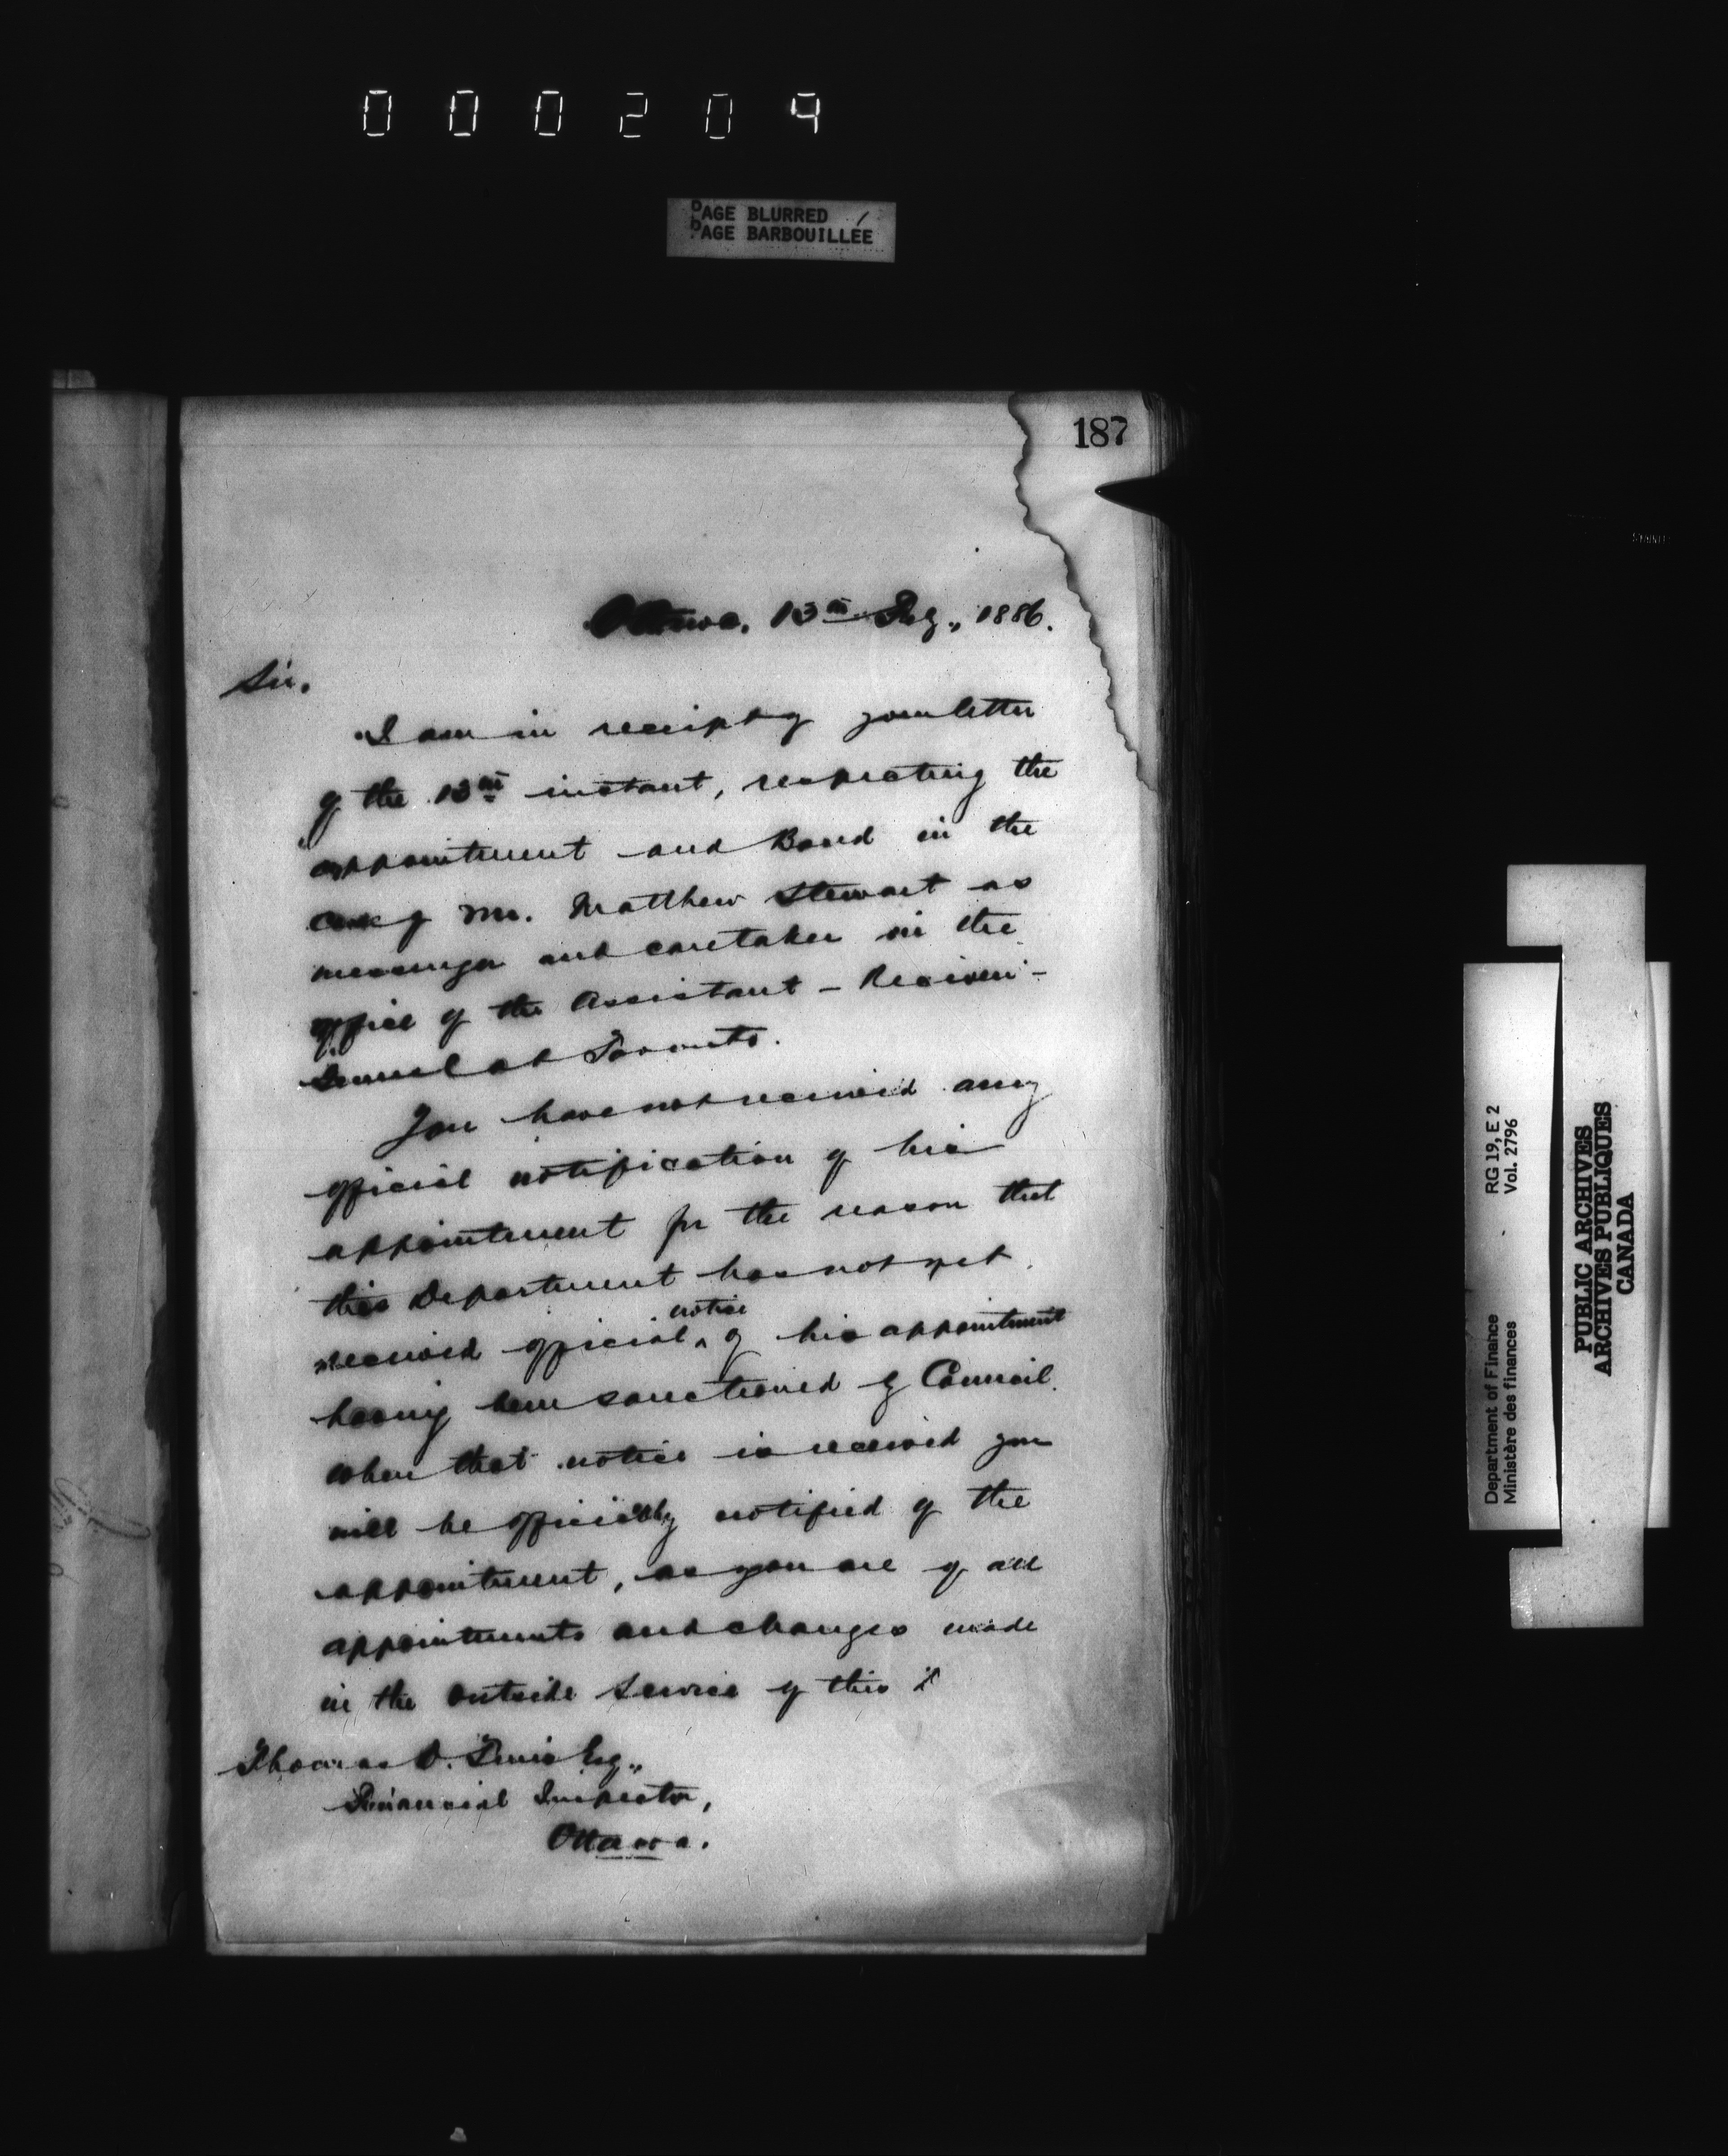 000204
PAGE BLURRED
PAGE BARBOUILLÉE
187
Ottawa, 13th Feby., 1886.
Sir,
I am in receipt of your letter
of the 13th instant, respecting the
appointment and Bond in the
case of Mr. Matthew Stewart as
messenger and caretaker in the
office of the Assistant-Receiver-
General at Toronto.
You have not received any
official notification of his
appointment for the reason that
this Department has not yet
received official notice of his appointment
having been sanctioned by Council.
When that notice is received you
will be officially notified of the
appointment, as you are of all
appointments and changes made
in the outside Service of this
Thomas D. Esq.,
Financial Inspector,
Ottawa.
Department of Finance RG 19, E 2
Ministère des finances Vol. 2796
PUBLIC ARCHIVES
ARCHIVES PUBLIQUES
CANADA